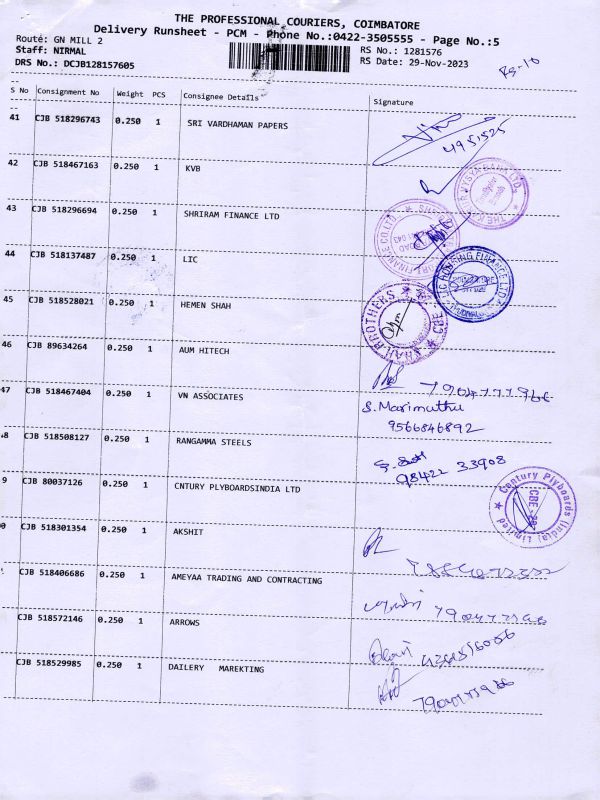 THE PROFESSIONAL COURIERS, COIMBATORE
Delivery Runsheet - PCM - Phone No.:0422-3505555 - Page No.:5
Route: GN MILL 2
RS No.: 1281576
Staff: NIRMAL
RS Date: 29-Nov-2023
DRS No.: DCJB128157605
Rs-10
S No Consignment No Weight PCS Consignee Details Signature
41 CJB 518296743 0.250 1 SRI VARDHAMAN PAPERS
42 CJB 518467163 0.250 1 KVB
43 CJB 518296694 0.250 1 SHRIRAM FINANCE LTD
44 CJB 518137487 0.250 1 LIC
45 CJB 518528021 0.250 1 HEMEN SHAH
46 CJB 89634264 0.250 1 AUM HITECH
47 CJB 518467404 0.250 1 VN ASSOCIATES
S. Marimuthu
9566846892
8 CJB 518508127 0.250 1 RANGAMMA STEELS
98422 33908
9 CJB 80037126 0.250 1 CNTURY PLYBOARDSINDIA LTD
Century Plyboards (India) Limited
0 CJB 518301354 0.250 1 AKSHIT
CJB 518406686 0.250 1 AMEYAA TRADING AND CONTRACTING
CJB 518572146 0.250 1 ARROWS
CJB 518529985 0.250 1 DAILERY MAREKTING